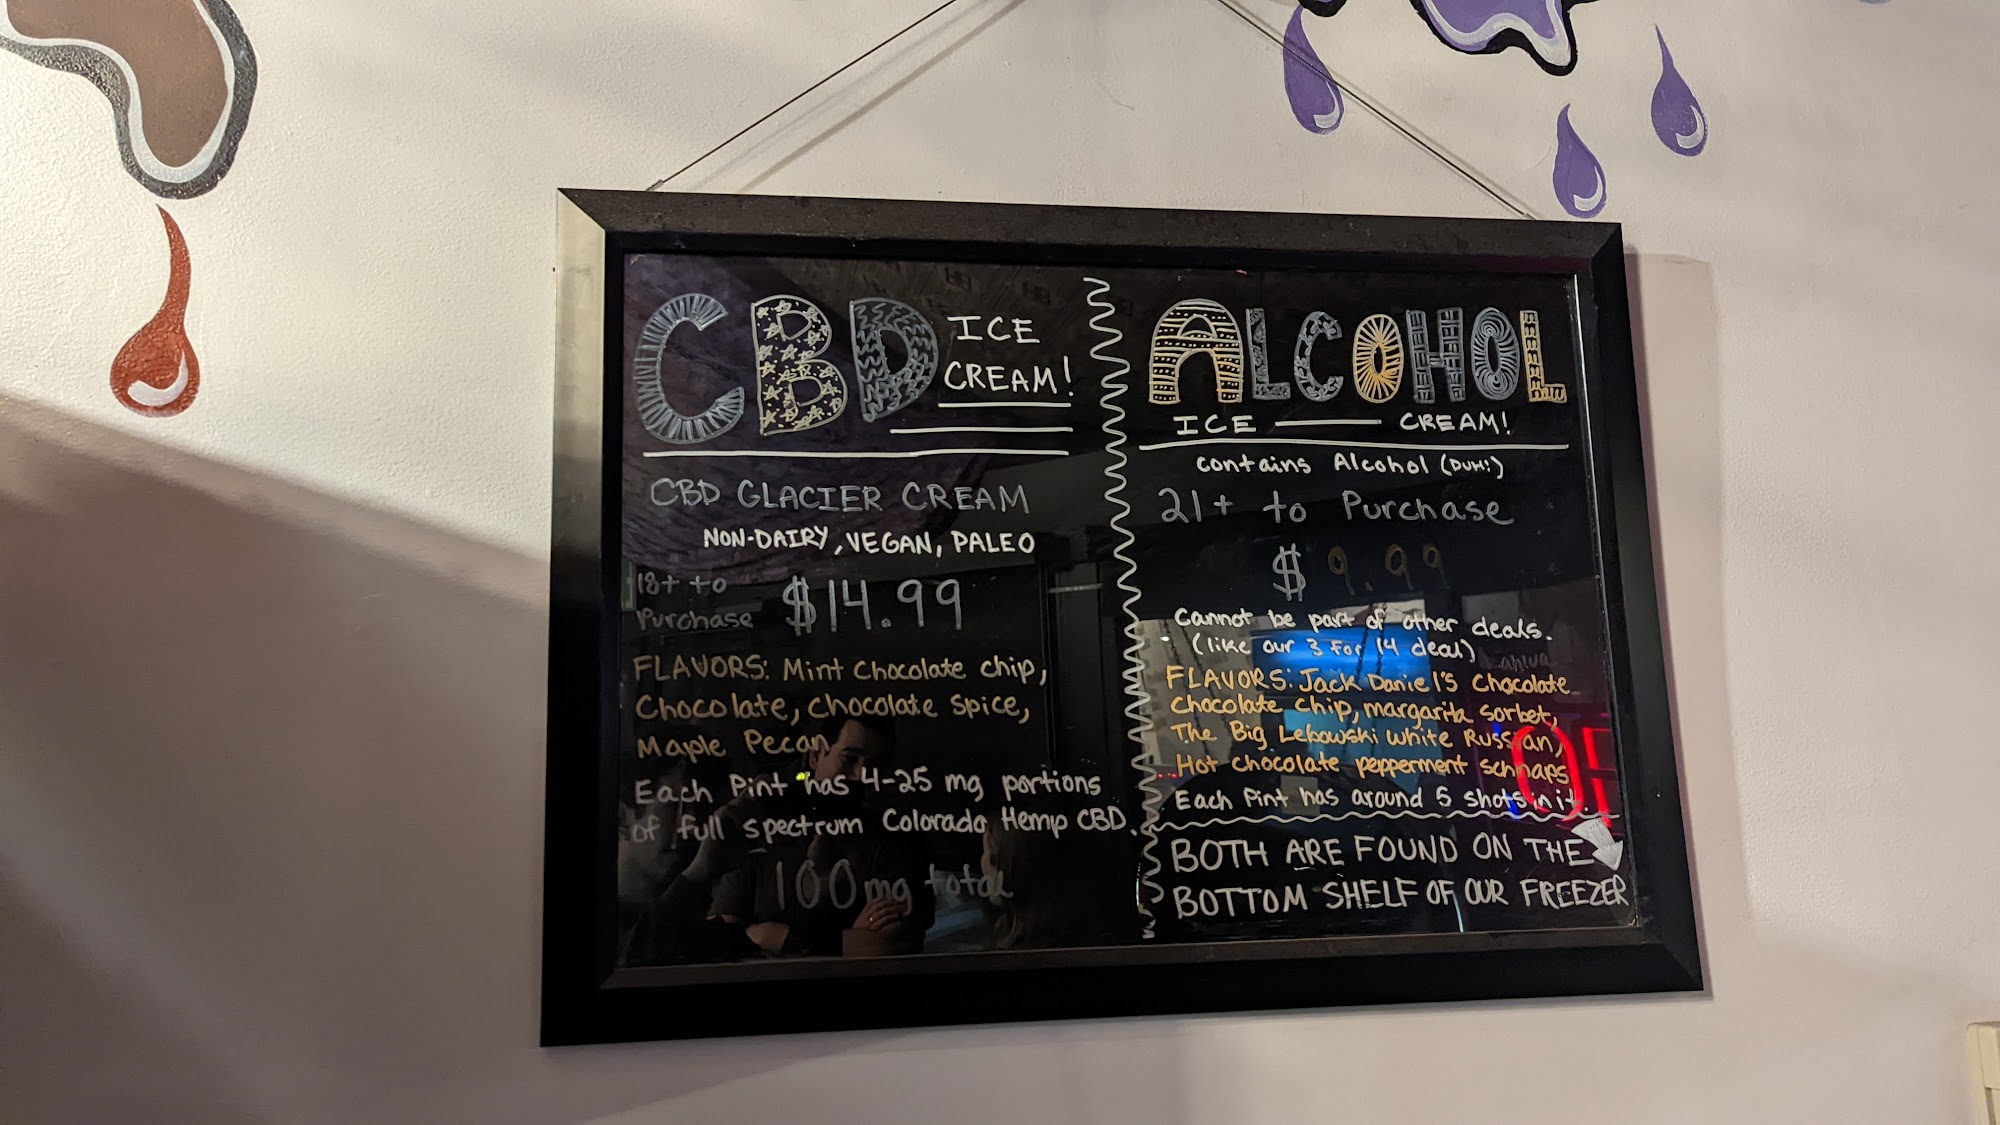 CBD ICE
CREAM!
CBD GLACIER CREAM
NON-DAIRY, VEGAN, PALEO
18+ to
Purchase $14.99
FLAVORS: Mint Chocolate Chip,
Chocolate, Chocolate Spice,
Maple Pecan
Each Pint has 4-25 mg portions
of full spectrum Colorado Hemp CBD.
100mg total
ALCOHOL
ICE CREAM!
contains Alcohol (DUH!)
21+ to Purchase
$9.99
Cannot be part of other deals.
(like our 3 for 14 deal)
FLAVORS: Jack Daniel's Chocolate
Chocolate Chip, margarita sorbet,
The Big Lebowski white Russian,
Hot Chocolate pepperment schnaps
Each Pint has around 5 shots in it.
BOTH ARE FOUND ON THE
BOTTOM SHELF OF OUR FREEZER